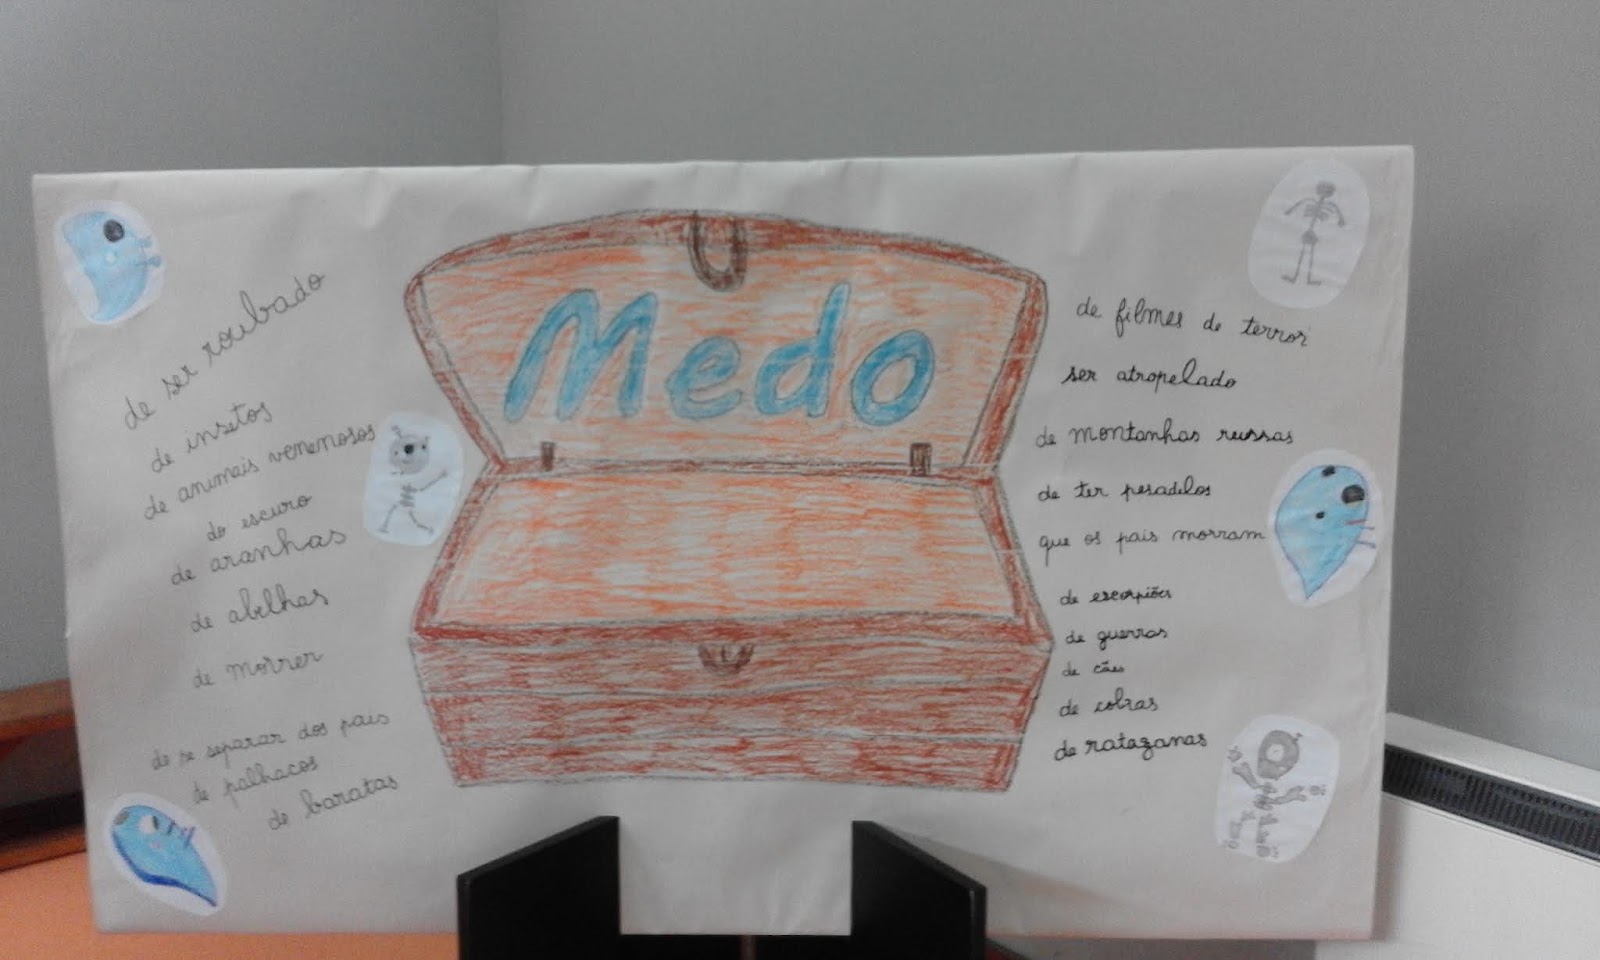 Medo
de ser roubado
de insetos
de animais venenosos
do escuro
de aranhas
de abelhas
de morrer
de se separar dos pais
de palhacos
de baratas
de filmes de terror
ser atropelado
de montanhas russas
de ter pesadelos
que os pais morram
de escorpiões
de guerras
de cães
de cobras
de ratazanas